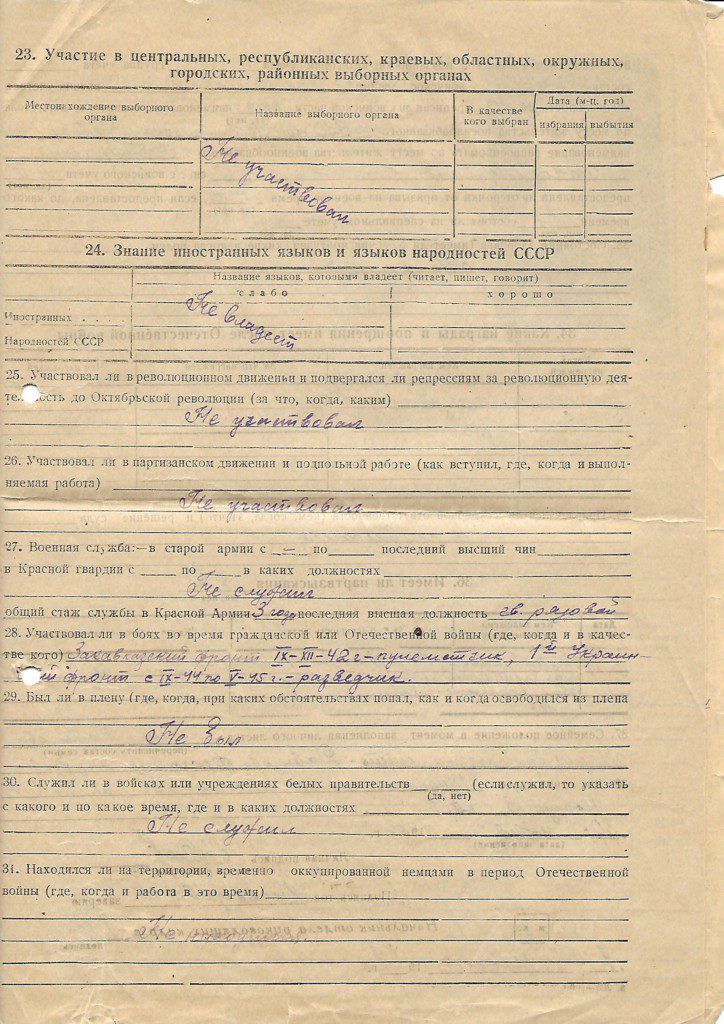 23. Участие в центральных, республиканских, краевых, областных, окружных,
городских, районных выборных органах
Местонахождение выборного органа
Название выборного органа
В качестве кого выбран
Дата (м-ц, год)
избрания
выбытия
Не участвовал
24. Знание иностранных языков и языков народностей СССР
Название языков, которыми владеет (читает, пишет, говорит)
слабо
хорошо
Иностранных
Не владеет
Народностей СССР
25. Участвовал ли в революционном движении и подвергался ли репрессиям за революционную дея-
те ость до Октябрьской революции (за что, когда, каким)
Не участвовал
26. Участвовал ли в партизанском движении и подпольной работе (как вступил, где, когда и выпол-
няемая работа)
Не участвовал
27. Военная служба:—в старой армии с — по последний высший чин
в Красной гвардии с по в каких должностях
Не служил
общий стаж службы в Красной Армии 3 года последняя высшая должность гв. рядовой
28. Участвовал ли в боях во время гражданской или Отечественной войны (где, когда и в качес-
тве кого) Закавказский фронт IX-XII-42г-пулеметчик, 1й Украин-
ий фронт с IX-44 по V-45г.-разведчик.
29. Был ли в плену (где, когда, при каких обстоятельствах попал, как и когда освободился из плена
Не был
30. Служил ли в войсках или учреждениях белых правительств (если служил, то указать
(да, нет)
с какого и по какое время, где и в каких должностях
Не служил
31. Находился ли на территории, временно оккупированной немцами в период Отечественной
войны (где, когда и работа в это время)
Не